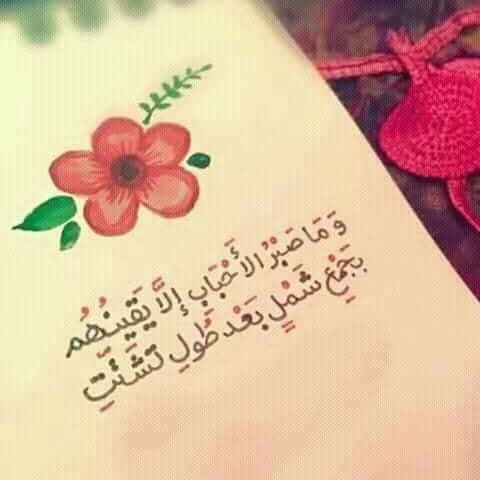 وَمَا صَبْرُ الأَحْبَابِ إلاَّ يَقِينُهُم
بِجَمْعِ شَمْلٍ بَعْدَ طُولِ تَشَتُّتِ